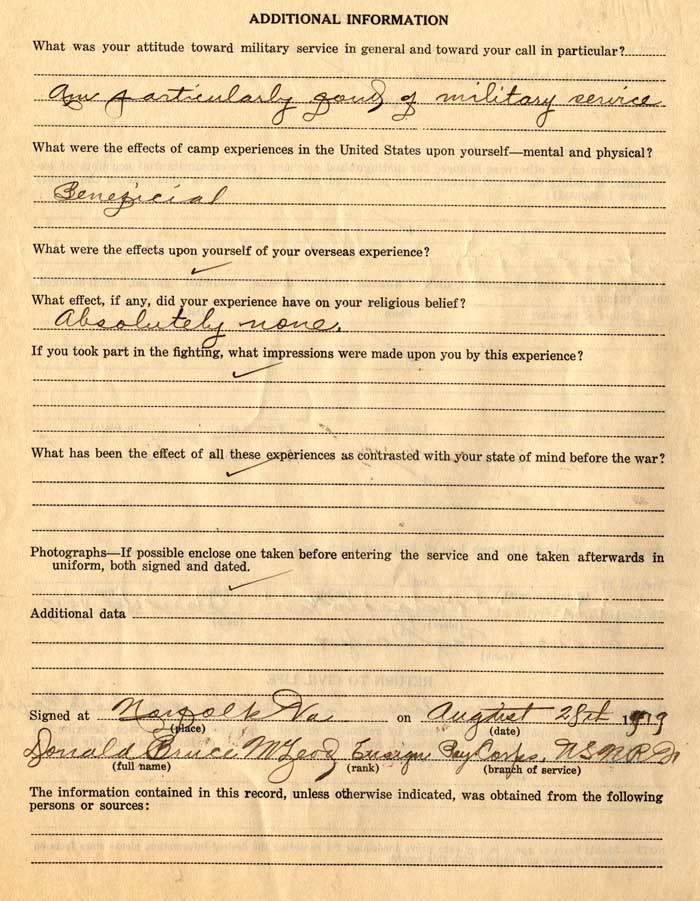 ADDITIONAL INFORMATION
What was your attitude toward military service in general and toward your call in particular?
Am particularly fond of military service
What were the effects of camp experiences in the United States upon yourself—mental and physical?
Beneficial
What were the effects upon yourself of your overseas experience?
What effect, if any, did your experience have on your religious belief?
Absolutely none.
If you took part in the fighting, what impressions were made upon you by this experience?
What has been the effect of all these experiences as contrasted with your state of mind before the war?
Photographs—If possible enclose one taken before entering the service and one taken afterwards in
uniform, both signed and dated.
Additional data
Signed at Norfolk Va on August 28th 1919
(place) (date)
Donald Bruce McLeod Ensign Pay Corps, U.S.N.R.F.
(full name) (rank) (branch of service)
The information contained in this record, unless otherwise indicated, was obtained from the following
persons or sources: